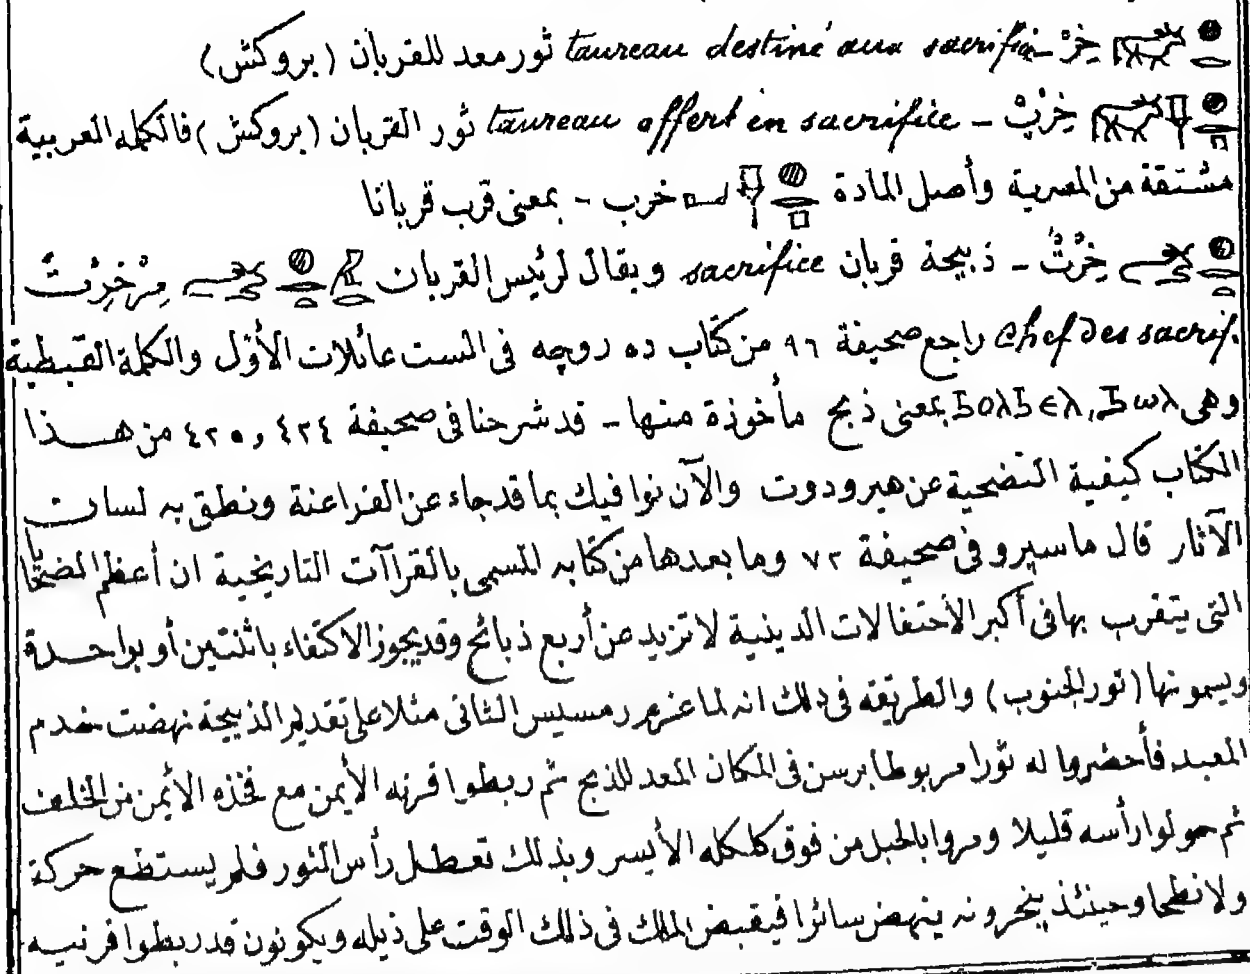 خِرْ - taureau destiné aux sacrifi ثور معد للقربان (بروكش)
خِرْبْ - taureau offert en sacrifice ثور القربان (بروكش) فالكلمه العربية
مشتقة من المصرية وأصل المادة خرب - بمعنى قرب قربانا
خِرْتْ - ذبيحة قربان sacrifice ويقال لرئيس القربان مِرْخِرْتْ
Chef des sacrif. راجع صحيفة ٩٦ من كتاب ده روچه فى الست عائلات الأوَّل والكلمة القبطية
وهى Ϧⲱⲗ, ϦⲟⲗϦⲉⲗ بمعنى ذبح مأخوذة منها - قد شرحنا فى صحيفة ٤٢٤ و ٤٢٥ من هذا
الكتاب كيفية التضحية عن هيرودوت والآن نوافيك بما قد جاء عن الفراعنة ونطق به لسان
الآثار قال ماسپرو فى صحيفة ٧٢ وما بعدها من كتابه المسمى بالقراآت التاريخية ان أعظم الضحايا
التى يتقرب بها فى أكبر الأحتفالات الدينية لا تزيد عن أربع ذبائح وقد يجوز الاكتفاء باثنتين أو بواحدة
ويسمونها (ثور الجنوب) والطريقه فى ذلك انه لما عزم رمسيس الثانى مثلا على تقديم الذبيحة نهضت خدم
المعبد فأحضروا له ثورا مربوطا برسن فى المكان المعد للذبح ثم ربطوا قرنه الأيمن مع فخذه الأيمن من الخلف
ثم حولوا رأسه قليلا ومروا بالحبل من فوق كلكله الأيسر وبذلك تعطل رأس الثور فلم يستطع حركة
ولا نطحا وحينئذ ينحرونه ينهض سائرا فيقبض الملك فى ذلك الوقت على ذيله ويكونون قد ربطوا قرنيه